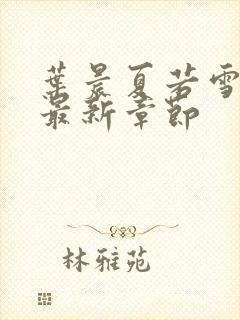 葉晨夏若雪
最新章節
林雅苑